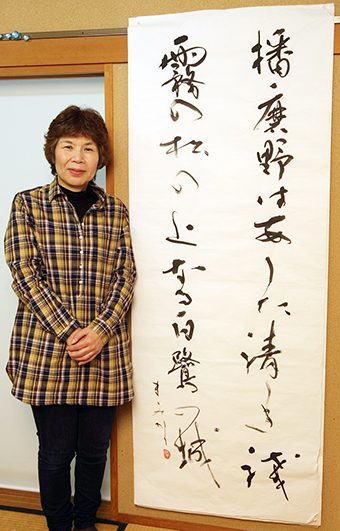 播磨野はあした清しき浅
霧の松の上なる白鷺の城